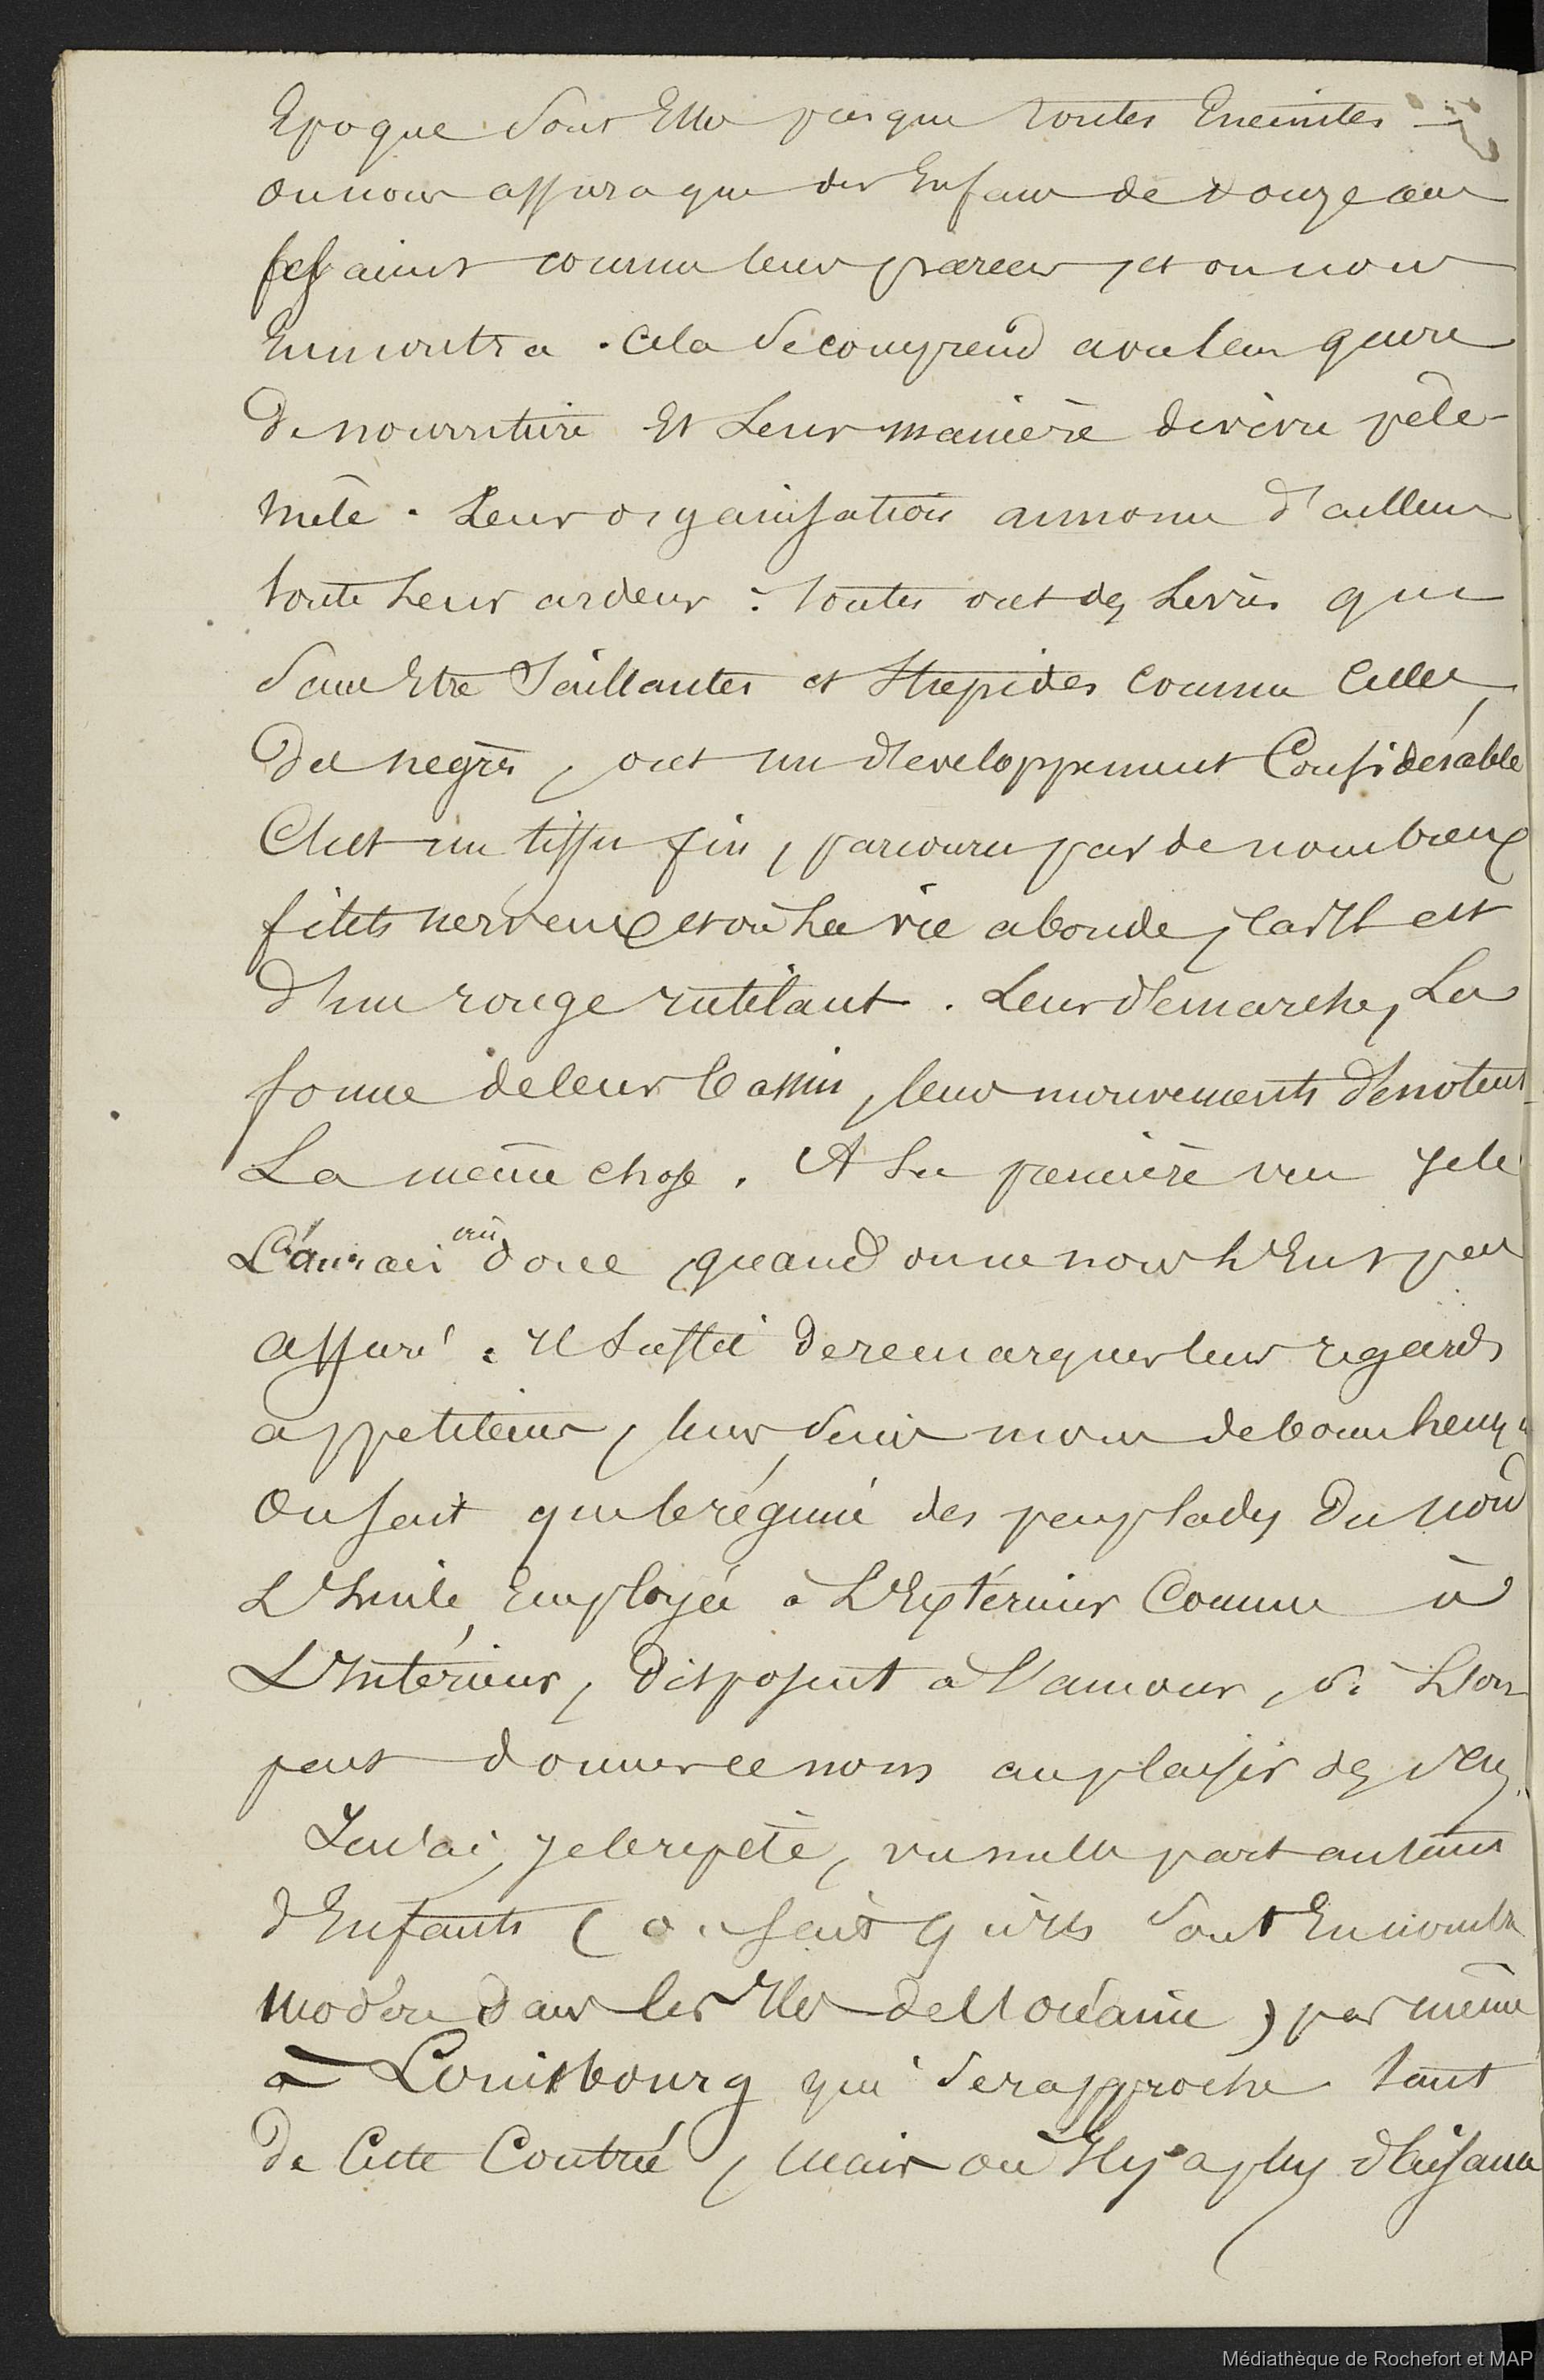 Epoque sont Elle presque toutes Enceintes
on nous assura que des Enfans de douze ans
fessaient comme leurs pareens, et on nous
En montra. Cela se comprend avec leur genre
de nourriture Et Leur manière de vivre pèle-
mèle. Leur organisation annonce d'ailleurs
toute Leur ardeur : toutes ont des Lèvres qui
sans Etre Saillantes et Stupides comme Celles
des negres, ont un developpement Considérable
C'est un tissu fin, parcouru par de nombreux
filets nerveux et où La vie abonde, car Il est
d'un rouge rutilant. Leur démarche, La
forme de leur bassin, leurs mouvements dénotent
La même chose. A La première vue je le
L'aurai crû donc quand on ne nous L'Eut pas
assuré. Il Suffit de remarquer leurs regards
appetiteurs, leurs seins mous de bonne heure
On sait que le régime des peuplades du Nord
L'huile Employée à L'Extérieur Comme à
L'Intérieur, disposent à l'amour, si L'on
peut donner ce nom au plaisir des sens.
Je n'ai, je le repète, vu nulle part autant
d'Enfants ( on sait qu'ils sont En nombre
modéré dans les Iles de l'océanie ) pas même
à Louisbourg qui se rapproche tant
de Cette Contrée, mais où Il y a plus d'aisance
Médiathèque de Rochefort et MAP